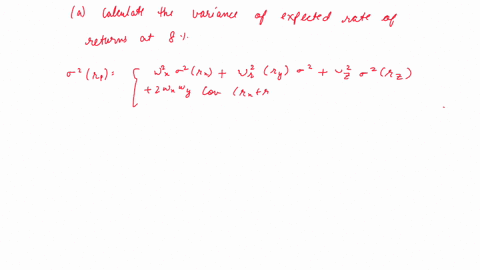 (a) Calculate the variance of expected rate of
returns at 8%.
σ²(rp): [ w²x σ²(rx) + w²y (ry) σ² + w²z σ²(rz)
+ 2wx wy Cov (rx + r